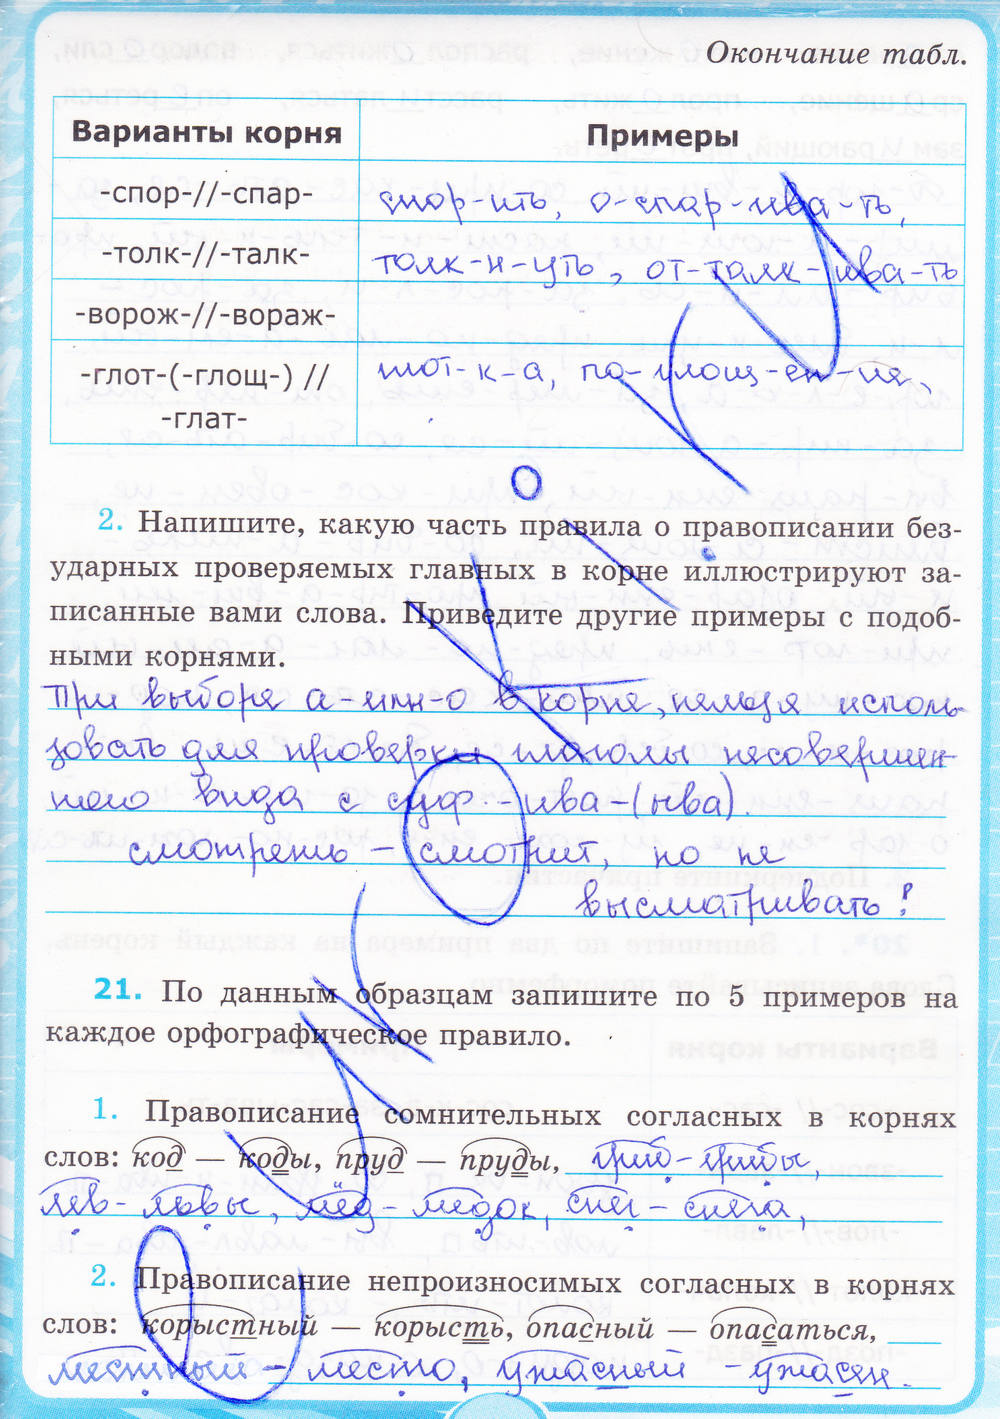 Окончание табл.
Варианты корня Примеры
-спор-//-спар- спор-ить, о-спар-ива-ть,
-толк-//-талк- толк-н-уть, от-талк-ива-ть
-ворож-//-вораж-
-глот-(-глощ-) // глот-к-а, по-глощ-ен-ие,
-глат-
2. Напишите, какую часть правила о правописании без-
ударных проверяемых главных в корне иллюстрируют за-
писанные вами слова. Приведите другие примеры с подоб-
ными корнями.
При выборе а-или-о в корне, нельзя исполь-
зовать для проверки глаголы несовершен-
ного вида с суф. -ива-(ыва).
смотреть – смотрит, но не
высматривать!
21. По данным образцам запишите по 5 примеров на
каждое орфографическое правило.
1. Правописание сомнительных согласных в корнях
слов: код — коды, пруд — пруды, гриб-грибы,
лев-львы, мёд-медок, снег-снега,
2. Правописание непроизносимых согласных в корнях
слов: корыстный — корысть, опасный — опасаться,
местный – место, ужасный – ужасен.